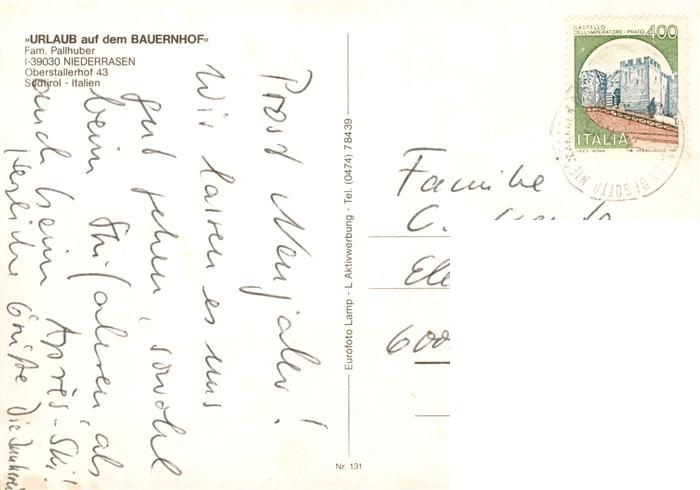 »URLAUB auf dem BAUERNHOF«
Fam. Pallhuber
I-39030 NIEDERRASEN
Oberstallerhof 43
Südtirol - Italien
Prosit Neujahr!
Wir lassen es uns
gut gehen, sowohl
beim Skifahren, als
auch beim Après-Ski!
Herzliche Grüße Die
Eurofoto Lamp - L Aktivwerbung - Tel. (0474) 78439
Nr. 131
CASTELLO
DELL'IMPERATORE-PRATO 400
ITALIA
I.P.Z.S. ROMA
DI SOTTO
Familie
600